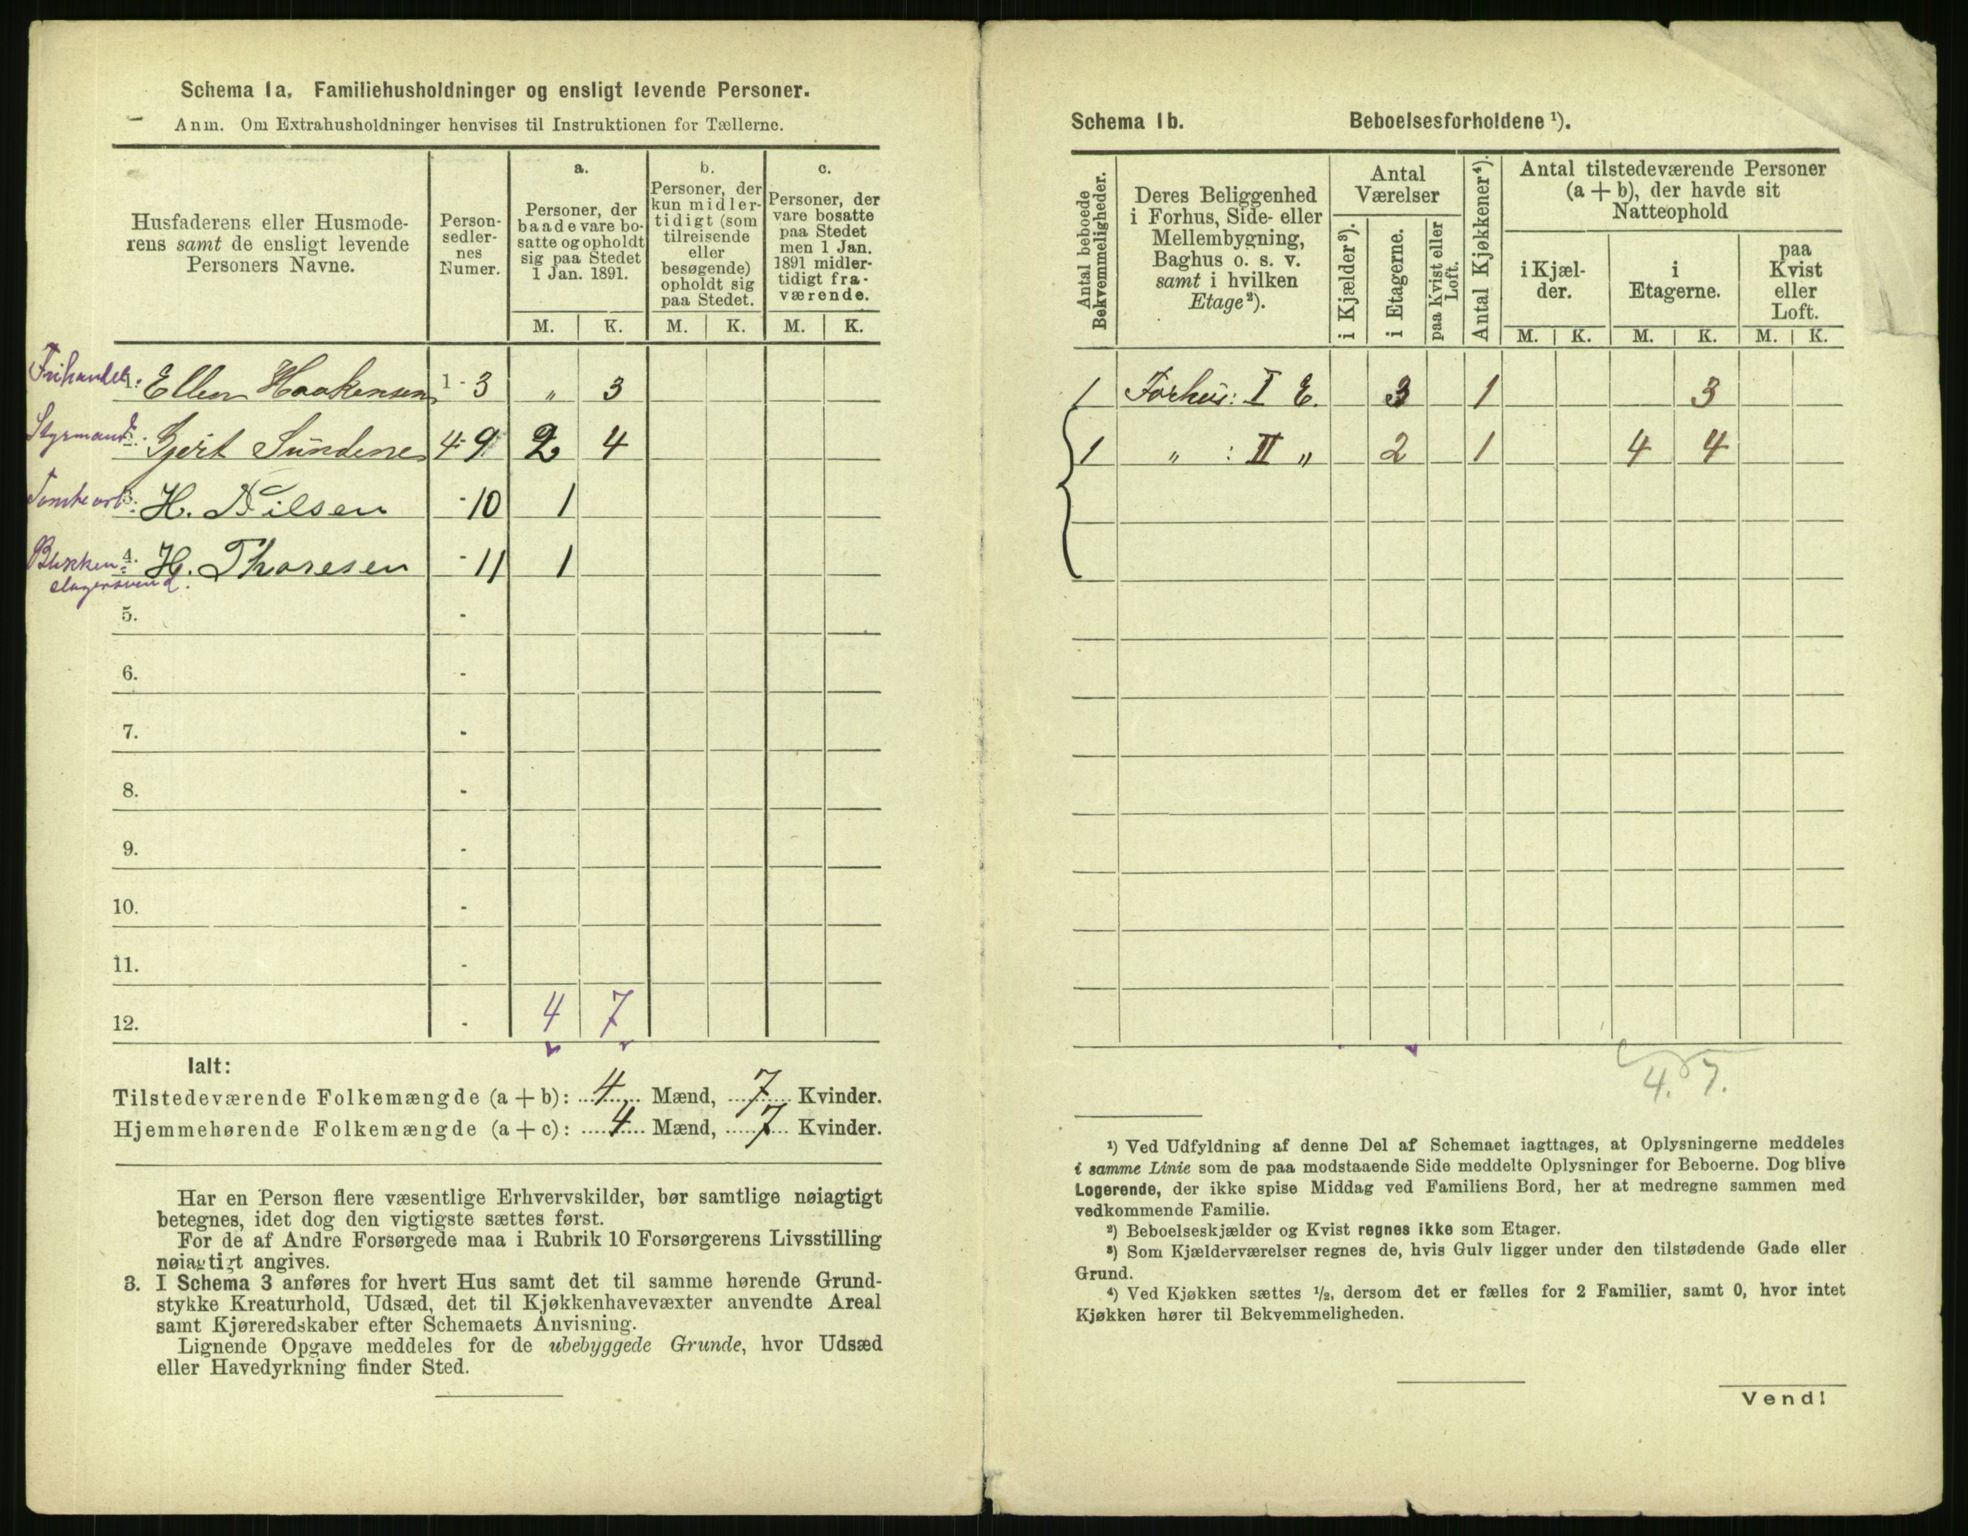 Schema 1a. Familiehusholdninger og ensligt levende Personer.
Anm. Om Extrahusholdninger henvises til Instruktionen for Tællerne.
Husfaderens eller Husmoderens samt de ensligt levende Personers Navne.
Personsedlernes Numer.
a. Personer, der baade vare bosatte og opholdt sig paa Stedet 1 Jan. 1891.
b. Personer, der kun midlertidigt (som tilreisende eller besøgende) opholdt sig paa Stedet.
c. Personer, der vare bosatte paa Stedet men 1 Jan. 1891 midlertidigt fraværende.
M. K. M. K. M. K.
Ellen Haakensen 1-3 " 3
Styrmand: Gjert Sundene 4-9 2 4
3. H. Nilsen -10 1
Blikken- 4. H. Thoresen -11 1
slagersvend.
5. -
6. -
7. -
8. -
9. -
10. -
11. -
12. - 4 7
Ialt:
Tilstedeværende Folkemængde (a + b): 4 Mænd, 7 Kvinder.
Hjemmehørende Folkemængde (a + c): 4 Mænd, 7 Kvinder.
Har en Person flere væsentlige Erhvervskilder, bør samtlige nøiagtigt
betegnes, idet dog den vigtigste sættes først.
For de af Andre Forsørgede maa i Rubrik 10 Forsørgerens Livsstilling
nøiagtigt angives.
3. I Schema 3 anføres for hvert Hus samt det til samme hørende Grund-
stykke Kreaturhold, Udsæd, det til Kjøkkenhavevæxter anvendte Areal
samt Kjøreredskaber efter Schemaets Anvisning.
Lignende Opgave meddeles for de ubebyggede Grunde, hvor Udsæd
eller Havedyrkning finder Sted.
Schema 1b. Beboelsesforholdene ¹).
Antal beboede Bekvemmeligheder.
Deres Beliggenhed i Forhus, Side- eller Mellembygning, Baghus o. s. v. samt i hvilken Etage²).
Antal Værelser
i Kjælder³).
i Etagerne.
paa Kvist eller Loft.
Antal Kjøkkener⁴).
Antal tilstedeværende Personer (a + b), der havde sit Natteophold
i Kjælder.
i Etagerne.
paa Kvist eller Loft.
M. K. M. K. M. K.
1 Forhus: I E. 3 1 3
1 " : II " 2 1 4 4
4. 7.
¹) Ved Udfyldning af denne Del af Schemaet iagttages, at Oplysningerne meddeles
i samme Linie som de paa modstaaende Side meddelte Oplysninger for Beboerne. Dog blive
Logerende, der ikke spise Middag ved Familiens Bord, her at medregne sammen med
vedkommende Familie.
²) Beboelseskjælder og Kvist regnes ikke som Etager.
³) Som Kjælderværelser regnes de, hvis Gulv ligger under den tilstødende Gade eller
Grund.
⁴) Ved Kjøkken sættes ½, dersom det er fælles for 2 Familier, samt 0, hvor intet
Kjøkken hører til Bekvemmeligheden.
Vend!